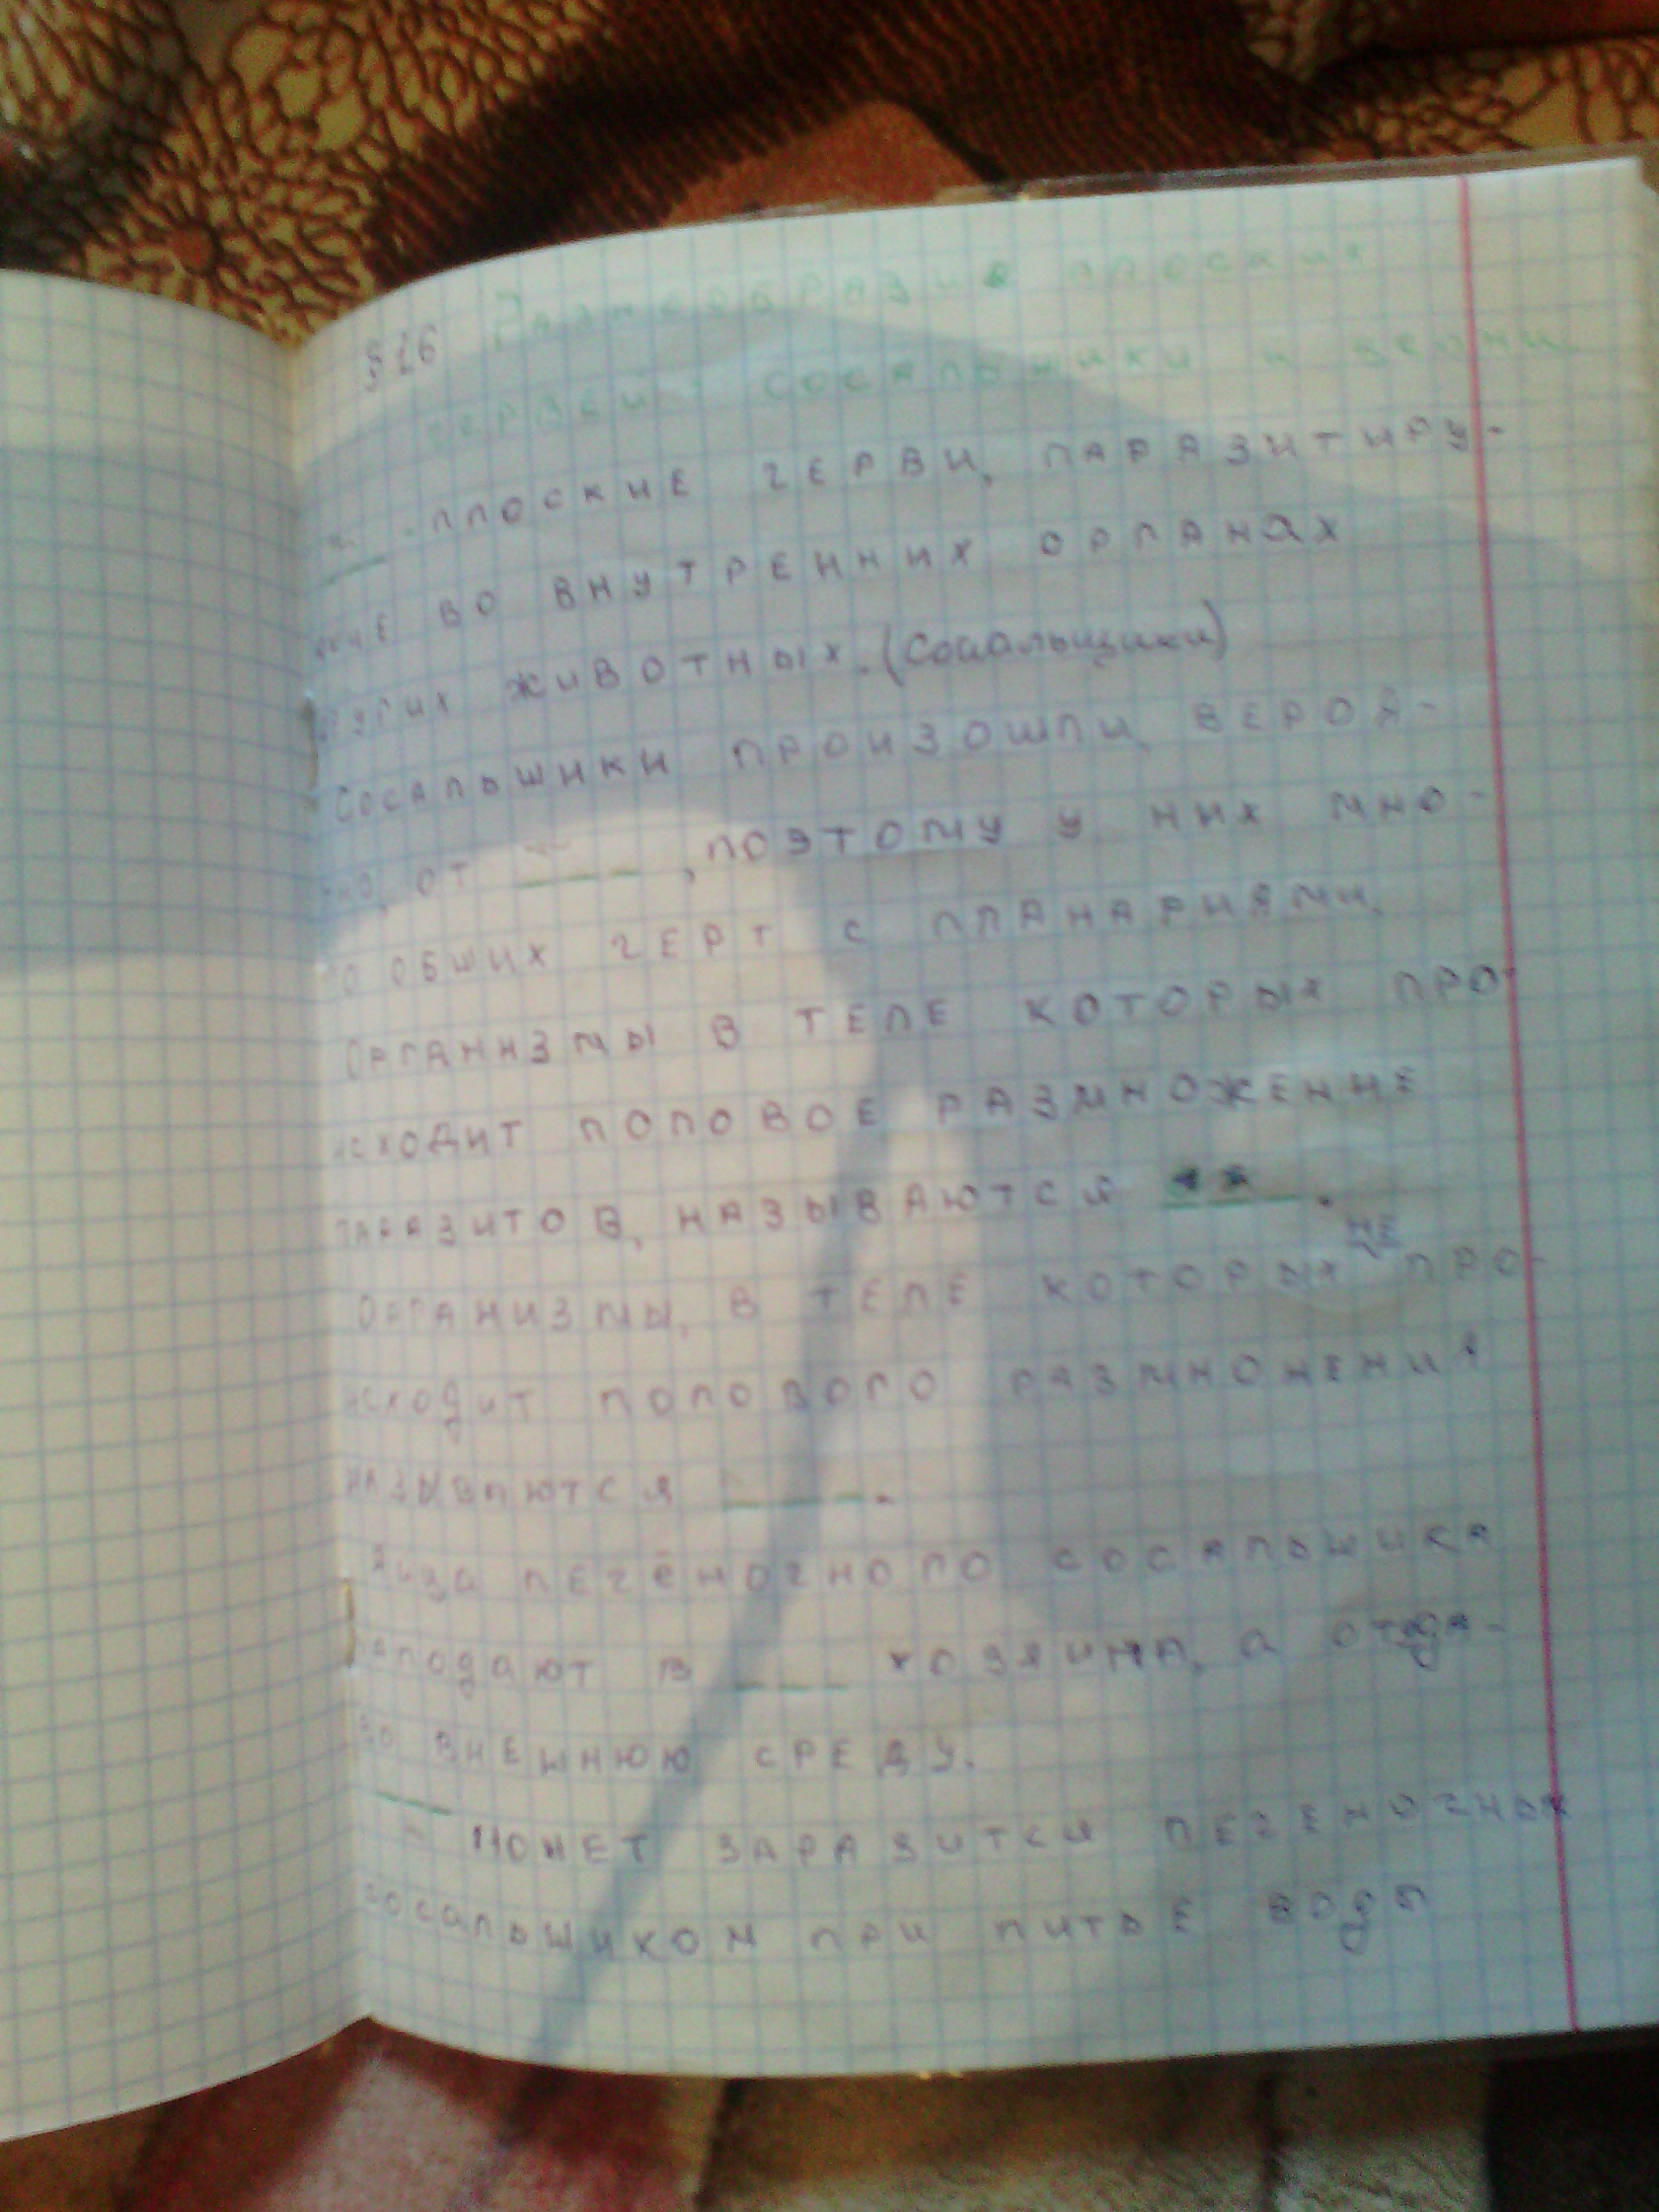 § 26 Разнообразие плоских
червей: сосальшики и
____ - плоские черви, паразитиру-
ющие во внутренних органах
других животных. (Сосальщики)
Сосальшики произошли, вероя-
тно, от ____, поэтому у них мно-
го обших черт с планариями.
Организмы в теле которых про-
исходит половое размножение
паразитов, называются ____.
Организмы, в теле которых не про-
исходит полового размножения
называются ____.
Яйца печёночного сосальшика
паподают в ____ хозяина, а
во внешнюю среду.
____ может заразится печеночным
сосальшиком при питье воды